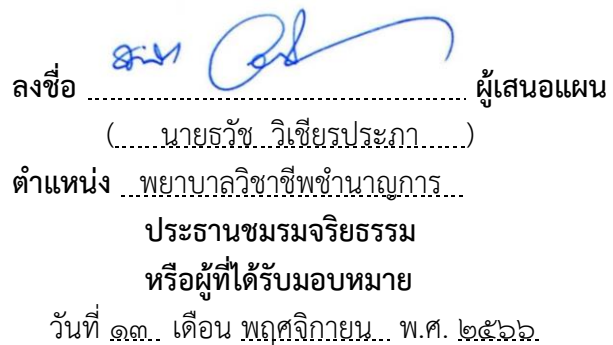 ลงชื่อ ........................................ ผู้เสนอแผน
(.....นายธวัช วิเชียรประภา.....)
ตำแหน่ง พยาบาลวิชาชีพชำนาญการ
ประธานชมรมจริยธรรม
หรือผู้ที่ได้รับมอบหมาย
วันที่ ๑๓ เดือน พฤศจิกายน พ.ศ. ๒๕๖๖